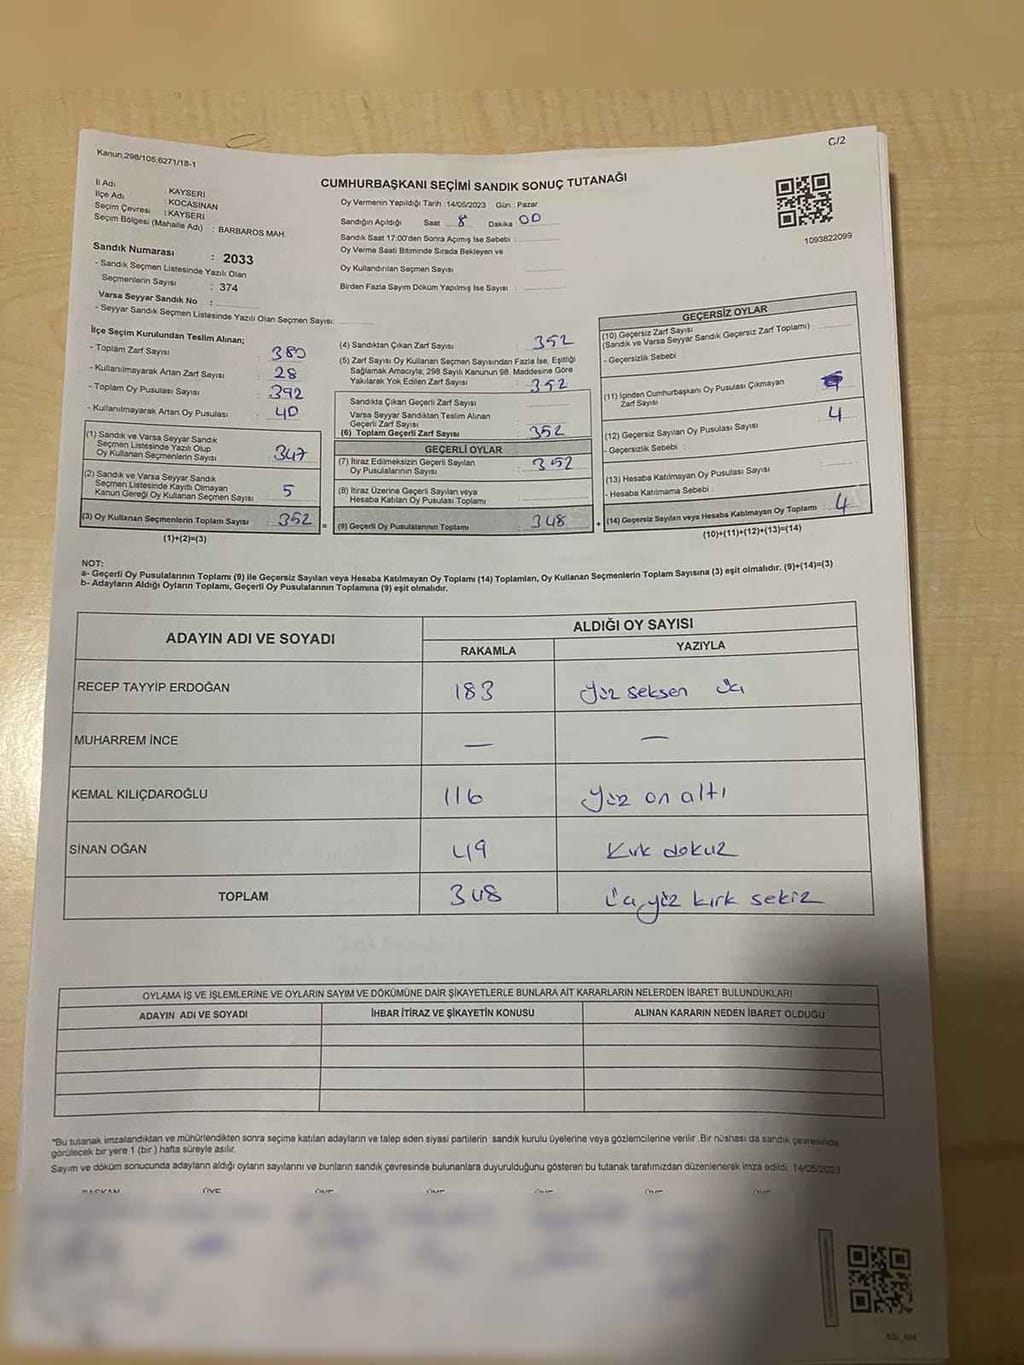 C/2
Kanun:298/105,6271/18-1
CUMHURBAŞKANI SEÇİMİ SANDIK SONUÇ TUTANAĞI
İl Adı : KAYSERİ
İlçe Adı : KOCASİNAN
Seçim Çevresi : KAYSERİ
Seçim Bölgesi (Mahalle Adı) : BARBAROS MAH.
Sandık Numarası : 2033
- Sandık Seçmen Listesinde Yazılı Olan
Seçmenlerin Sayısı : 374
Varsa Seyyar Sandık No :
- Seyyar Sandık Seçmen Listesinde Yazılı Olan Seçmen Sayısı:
Oy Vermenin Yapıldığı Tarih :14/05/2023 Gün : Pazar
Sandığın Açıldığı Saat 8 Dakika 00
Sandık Saat 17:00'den Sonra Açımış İse Sebebi :
Oy Verme Saati Bitiminde Sırada Bekleyen ve
Oy Kullandırılan Seçmen Sayısı
Birden Fazla Sayım Döküm Yapılmış İse Sayısı :
1093822099
İlçe Seçim Kurulundan Teslim Alınan;
- Toplam Zarf Sayısı : 380
- Kullanılmayarak Artan Zarf Sayısı : 28
- Toplam Oy Pusulası Sayısı : 392
- Kullanılmayarak Artan Oy Pusulası : 40
(1) Sandık ve Varsa Seyyar Sandık
Seçmen Listesinde Yazılı Olup
Oy Kullanan Seçmenlerin Sayısı : 347
(2) Sandık ve Varsa Seyyar Sandık
Seçmen Listesinde Kayıtlı Olmayan
Kanun Gereği Oy Kullanan Seçmen Sayısı : 5
(3) Oy Kullanan Seçmenlerin Toplam Sayısı : 352 =
(1)+(2)=(3)
(4) Sandıktan Çıkan Zarf Sayısı : 352
(5) Zarf Sayısı Oy Kullanan Seçmen Sayısından Fazla İse, Eşitliği
Sağlamak Amacıyla, 298 Sayılı Kanunun 98. Maddesine Göre
Yakılarak Yok Edilen Zarf Sayısı : 352
Sandıkta Çıkan Geçerli Zarf Sayısı
Varsa Seyyar Sandıktan Teslim Alınan
Geçerli Zarf Sayısı
(6) Toplam Geçerli Zarf Sayısı : 352
GEÇERLİ OYLAR
(7) İtiraz Edilmeksizin Geçerli Sayılan
Oy Pusulalarının Sayısı : 352
(8) İtiraz Üzerine Geçerli Sayılan veya
Hesaba Katılan Oy Pusulası Toplamı
(9) Geçerli Oy Pusulalarının Toplamı : 348 +
GEÇERSİZ OYLAR
(10) Geçersiz Zarf Sayısı
(Sandık ve Varsa Seyyar Sandık Geçersiz Zarf Toplamı) :
- Geçersizlik Sebebi
(11) İçinden Cumhurbaşkanı Oy Pusulası Çıkmayan
Zarf Sayısı
(12) Geçersiz Sayılan Oy Pusulası Sayısı : 4
- Geçersizlik Sebebi :
(13) Hesaba Katılmayan Oy Pusulası Sayısı
- Hesaba Katılmama Sebebi :
(14) Geçersiz Sayılan veya Hesaba Katılmayan Oy Toplamı : 4
(10)+(11)+(12)+(13)=(14)
NOT:
a- Geçerli Oy Pusulalarının Toplamı (9) ile Geçersiz Sayılan veya Hesaba Katılmayan Oy Toplamı (14) Toplamları, Oy Kullanan Seçmenlerin Toplam Sayısına (3) eşit olmalıdır. (9)+(14)=(3)
b- Adayların Aldığı Oyların Toplamı, Geçerli Oy Pusulalarının Toplamına (9) eşit olmalıdır.
ADAYIN ADI VE SOYADI
ALDIĞI OY SAYISI
RAKAMLA YAZIYLA
RECEP TAYYİP ERDOĞAN 183 Yüz seksen üç
MUHARREM İNCE — —
KEMAL KILIÇDAROĞLU 116 Yüz on altı
SİNAN OĞAN 49 Kırk dokuz
TOPLAM 348 Üçyüz kırk sekiz
OYLAMA İŞ VE İŞLEMLERİNE VE OYLARIN SAYIM VE DÖKÜMÜNE DAİR ŞİKAYETLERLE BUNLARA AİT KARARLARIN NELERDEN İBARET BULUNDUKLARI
ADAYIN ADI VE SOYADI İHBAR İTİRAZ VE ŞİKAYETİN KONUSU ALINAN KARARIN NEDEN İBARET OLDUĞU
"Bu tutanak imzalandıktan ve mühürlendikten sonra seçime katılan adayların ve talep eden siyasi partilerin sandık kurulu üyelerine veya gözlemcilerine verilir ,Bir nüshası da sandık çevresinde
görülecek bir yere 1 (bir ) hafta süreyle asılır.
Sayım ve döküm sonucunda adayların aldığı oyların sayılarını ve bunların sandık çevresinde bulunanlara duyurulduğunu gösteren bu tutanak tarafımızdan düzenlenerek imza edildi. 14/05/2023
BAŞKAN ÜYE ÜYE ÜYE ÜYE ÜYE ÜYE